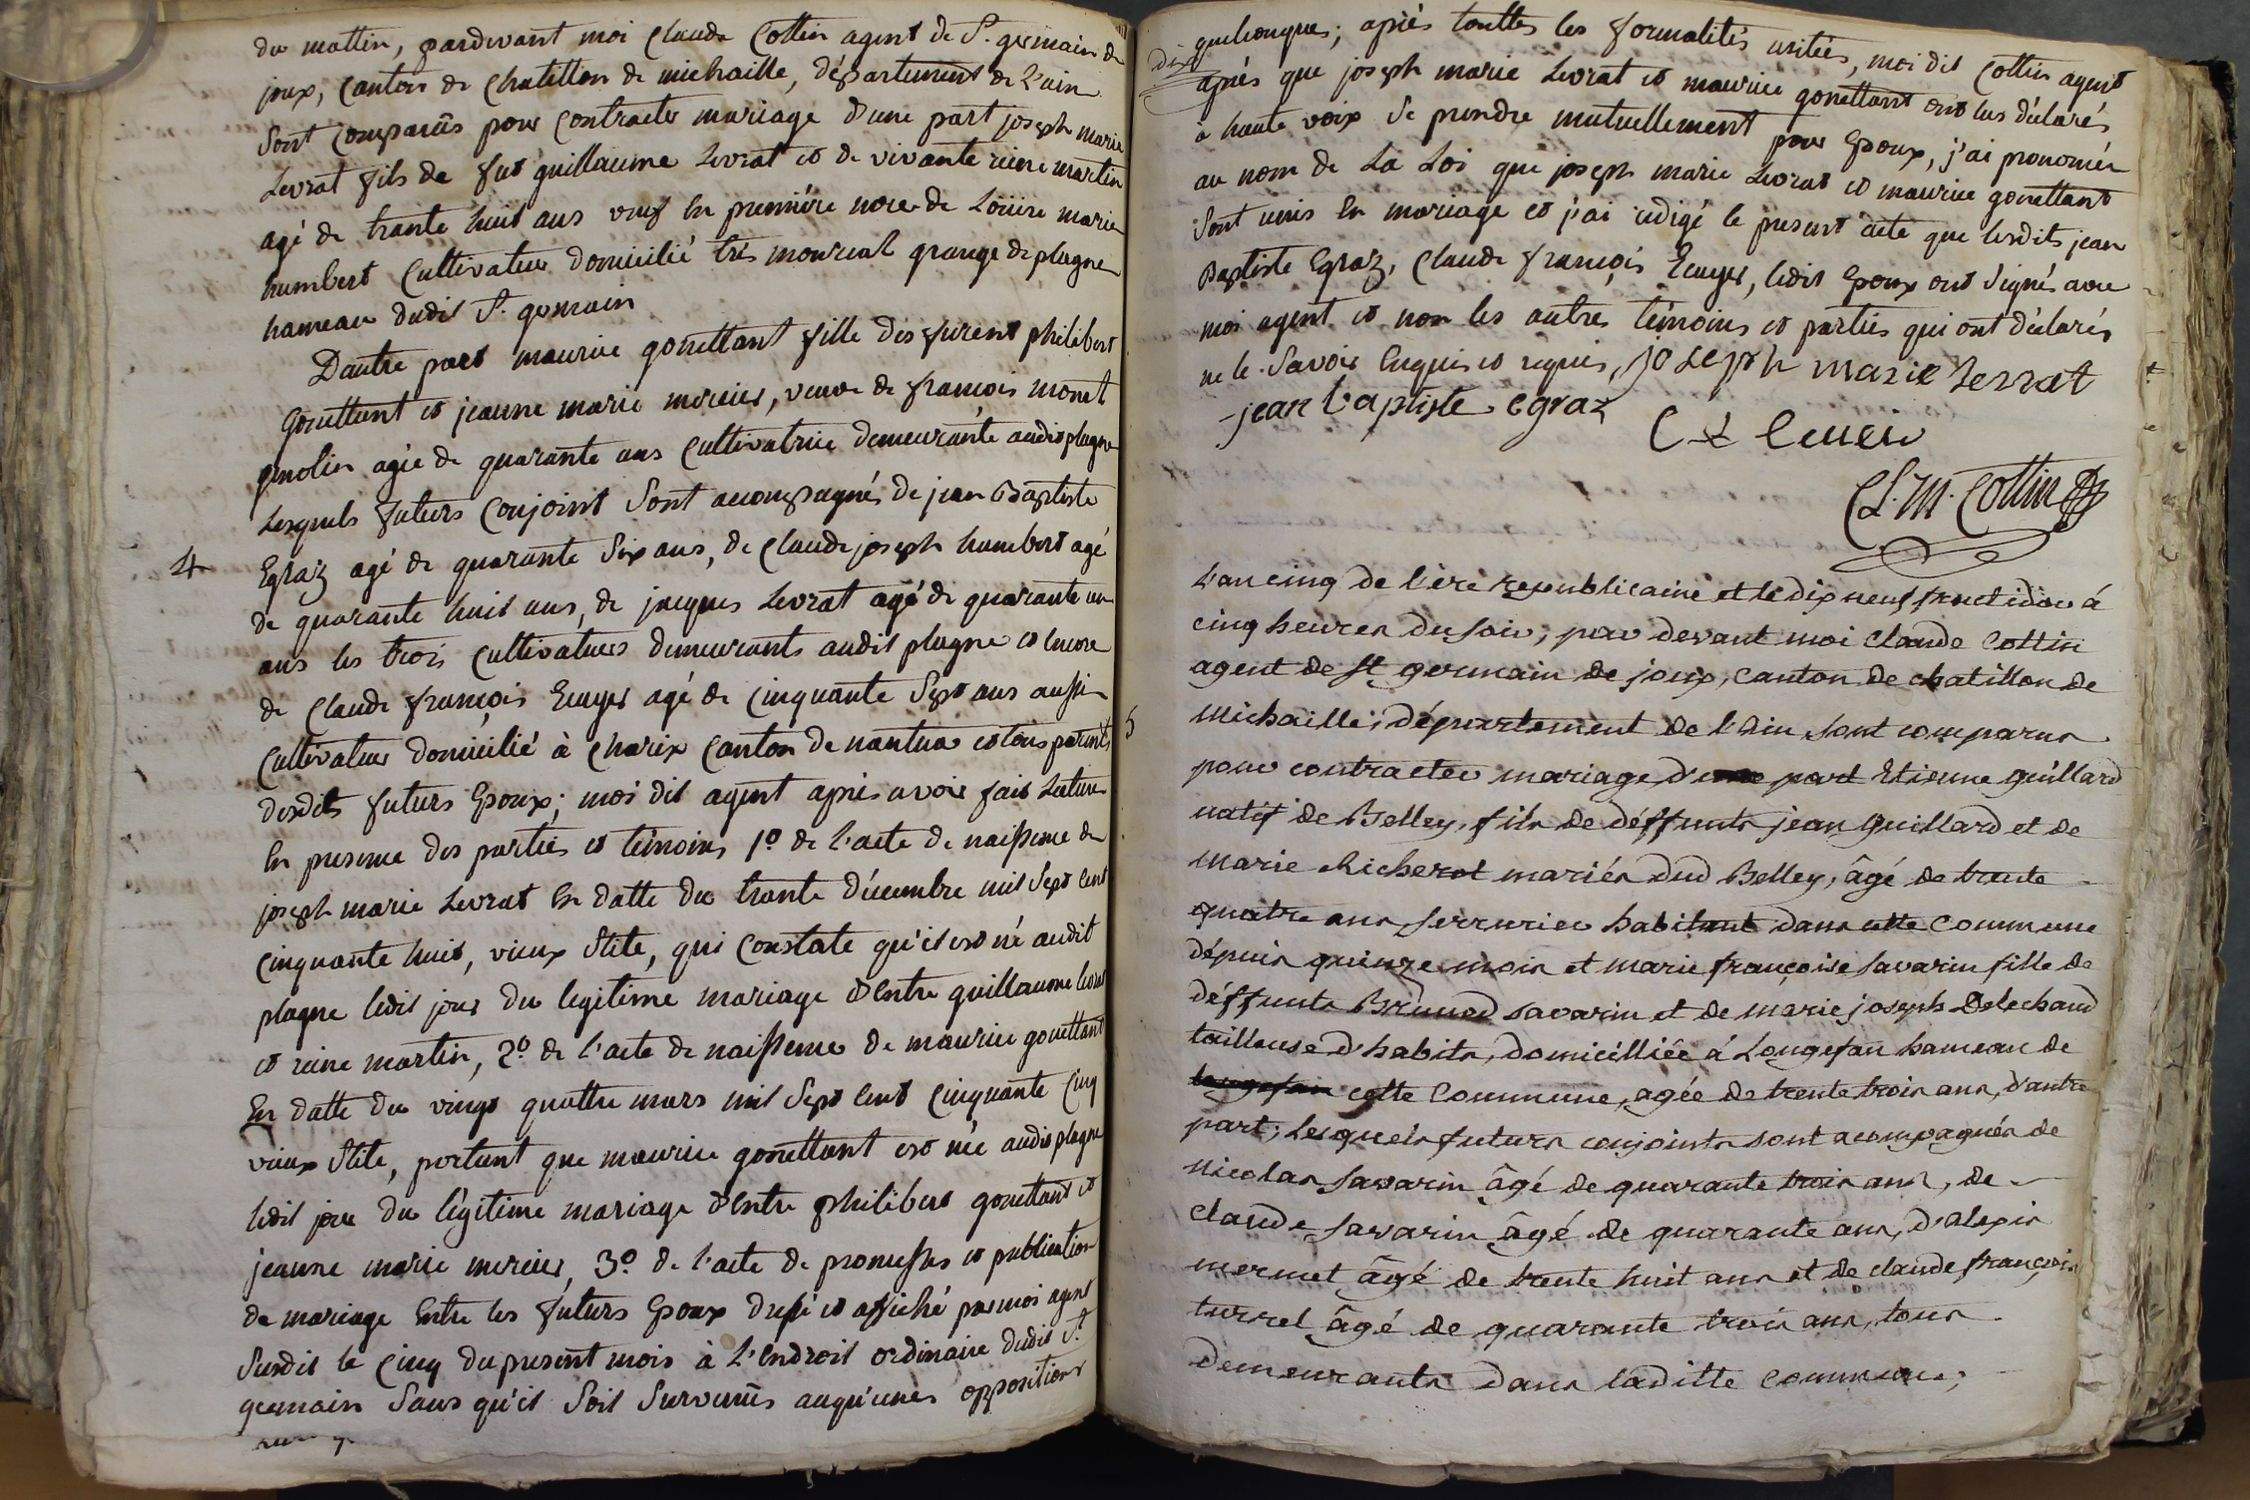 du mattin, pardevant moi Claude Cottin agent de St. germain de
joux, Canton de Chatillon de michaille, département de L'ain
Sont Comparûs pour Contracter mariage d'une part joseph marie
Levrat fils de fut guillaume Levrat et de vivante reine martin
agé de trante huit ans veuf en première noce de Loüise marie
humbert Cultivateur domicilié grange de plagne
hameau dudit St. germain
D'autre part maurice gonettant fille des furent philibert
Gonettant et jeanne marie mercier, veuve de françois monet
gmolin agée de quarante ans Cultivatrice demeurante audit plagne
Lesquels futurs Conjoint Sont accompagnés de jean Baptiste
4
Egraz agé de quarante Six ans, de Claude joseph humbert agé
de quarante huit ans, de jacques Levrat agé de quarante un
ans les trois Cultivateurs demeurants audit plagne et encore
de Claude françois Ecuyer agé de Cinquante Sept ans aussi
Cultivateur domicilié à Charix Canton de nantua et tous parents
desdits futurs Epoux; moi dit agent après avoir fait Lecture
En presence des parties et témoins 1o de l'acte de naissence de
joseph marie Levrat En datte du trante décembre mil Sept cent
Cinquante huit, vieux Stile, qui Constate qu'il est né audit
plagne ledit jour du legitime mariage d'Entre guillaume levrat
et reine martin, 2o de l'acte de naissence de maurice gonettant
En datte du vingt quattre mars mil Sept Cent Cinquante Cinq
vieux Stile, portant que maurice gonettant est née audit plagne
ledit jour du légitime mariage d'Entre philibert gonettant et
jeanne marie mercier, 3o de l'acte de promesses et publication
de mariage Entre les futurs Epoux dressé et affiché par moi agent
Susdit le Cinq du present mois à L'Endroit ordinaire dudit St.
germain Sans qu'il Soit Survenus auqu'unes oppositions
quelconques; après touttes les formalités usitées, moi dit Cottin agent
dix
après que joseph marie Levrat et maurice gonettant ont eus déclarés
à haute voix Se prendre mutuellement pour Epoux, j'ai prononcés
au nom de La Loi que joseph marie Levrat et maurice gonettant
Sont unis En mariage et j'ai redigé le present acte que lesdits jean
Baptiste Egraz, Claude françois Ecuyer, ledit Epoux ont Signés avec
moi agent et non les autres témoins et parties qui ont déclarés
ne le Savoir Enquis et requis, joseph marie Levrat
jean baptiste egraz
Cl. M. Cottin
L'an cinq de l'ère republicaine et le dix neuf fructidor à
cinq heures du soir, par devant moi Claude Cottin
agent de St germain de joux, canton de chatillon de
5
Michaille, département de l'Ain, sont comparus
pour contracter mariage d'une part Etienne guillard
natif de Belley, fils de déffunts jean guillard et de
marie Richerot mariés dud Belley, âgé de trente
quatre ans serrurier habitant dans cette Commune
dépuis quinze mois et marie françoise savarin fille de
déffunts savarin et de marie joseph Delechaud
tailleuse d'habits, domicilliée à Longefan hameau de
longefan cette Commune, agée de trente trois ans, d'autre
part; Lesquels futurs conjoints sont acompagnés de
nicolas savarin âgé de quarante trois ans, de
claude savarin âgé de quarante ans, d'alexis
mermet âgé de trente huit ans et de claude françois
turrel âgé de quarante trois ans, tous
demeurants dans laditte Commune;